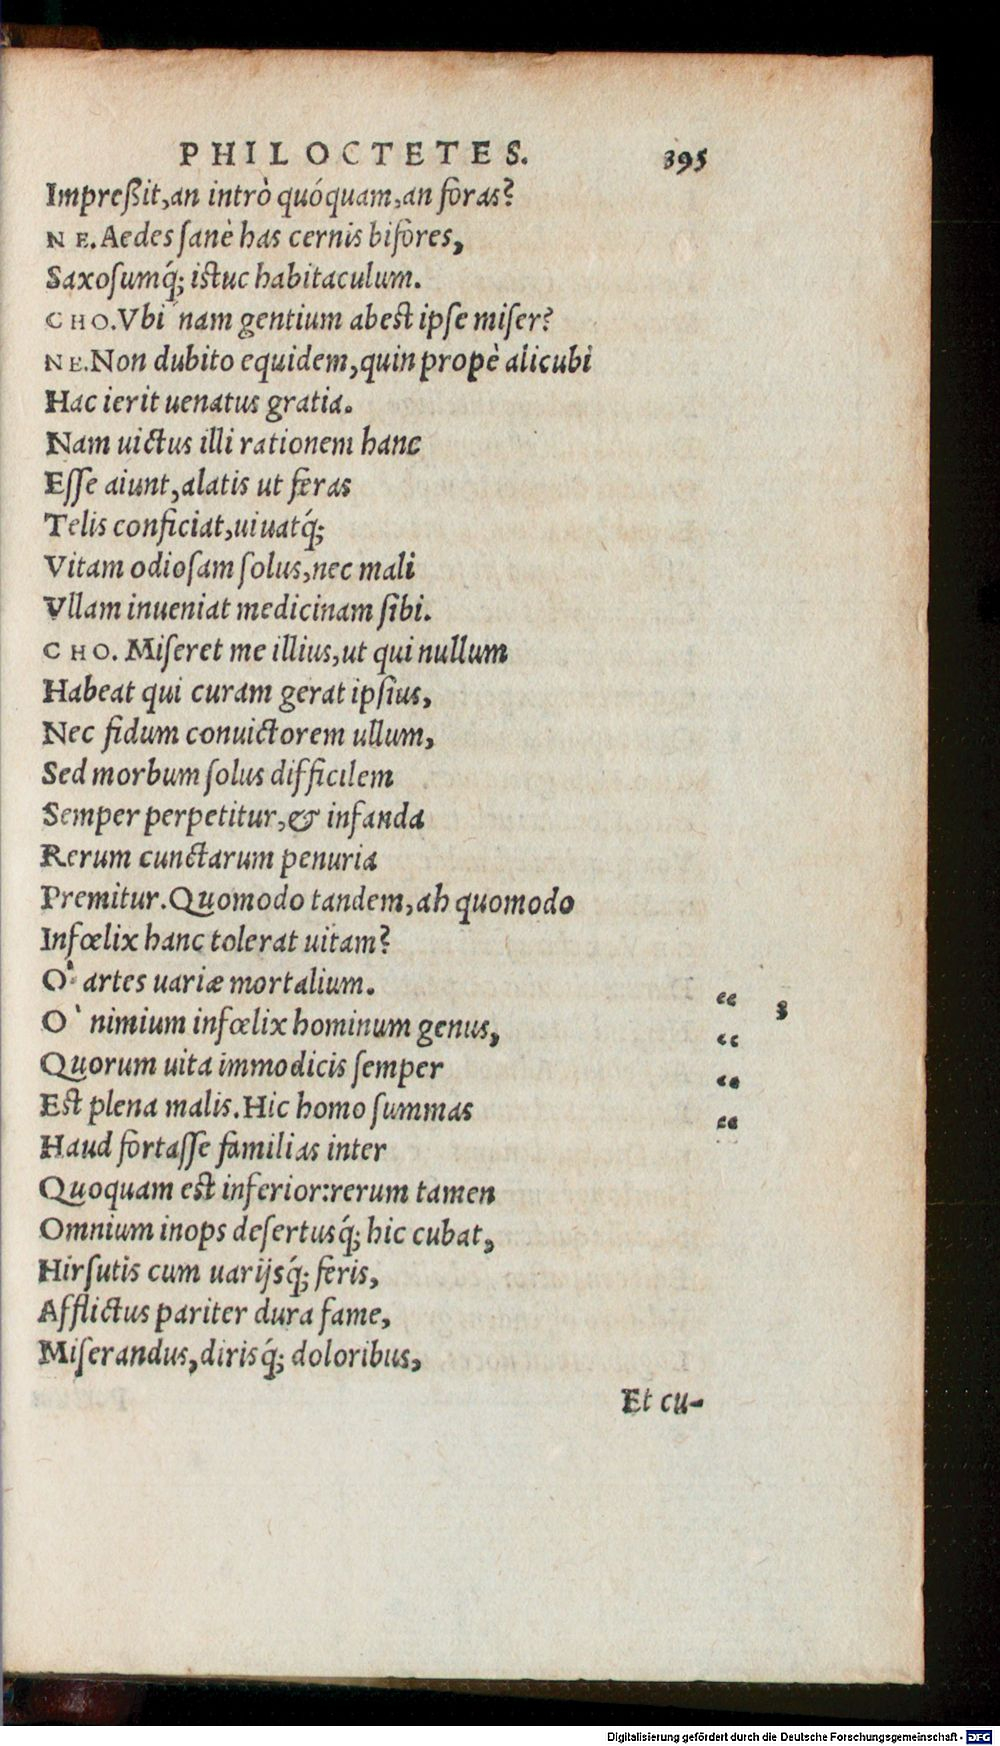 PHILOCTETES. 395
Impreßit,an intrò quóquam,an foras?
NE.Aedes ſanè has cernis bifores,
Saxoſumq́; iſtuc habitaculum.
CHO.Vbi nam gentium abeſt ipſe miſer?
NE.Non dubito equidem,quin propè alicubi
Hac ierit uenatus gratia.
Nam uictus illi rationem hanc
Eſſe aiunt,alatis ut feras
Telis conficiat,uiuatq́;
Vitam odioſam ſolus,nec mali
Vllam inueniat medicinam ſibi.
CHO. Miſeret me illius,ut qui nullum
Habeat qui curam gerat ipſius,
Nec fidum conuictorem ullum,
Sed morbum ſolus difficilem
Semper perpetitur,& infanda
Rerum cunctarum penuria
Premitur.Quomodo tandem,ah quomodo
Infœlix hanc tolerat uitam?
O` artes uariæ mortalium. “ 3
O` nimium infœlix hominum genus, “
Quorum uita immodicis ſemper “
Eſt plena malis.Hic homo ſummas “
Haud fortaſſe familias inter
Quoquam eſt inferior:rerum tamen
Omnium inops deſertusq́; hic cubat,
Hirſutis cum uarijsq́; feris,
Afflictus pariter dura fame,
Miſerandus,dirisq́; doloribus,
Et cu-
Digitalisierung gefördert durch die Deutsche Forschungsgemeinschaft - DFG